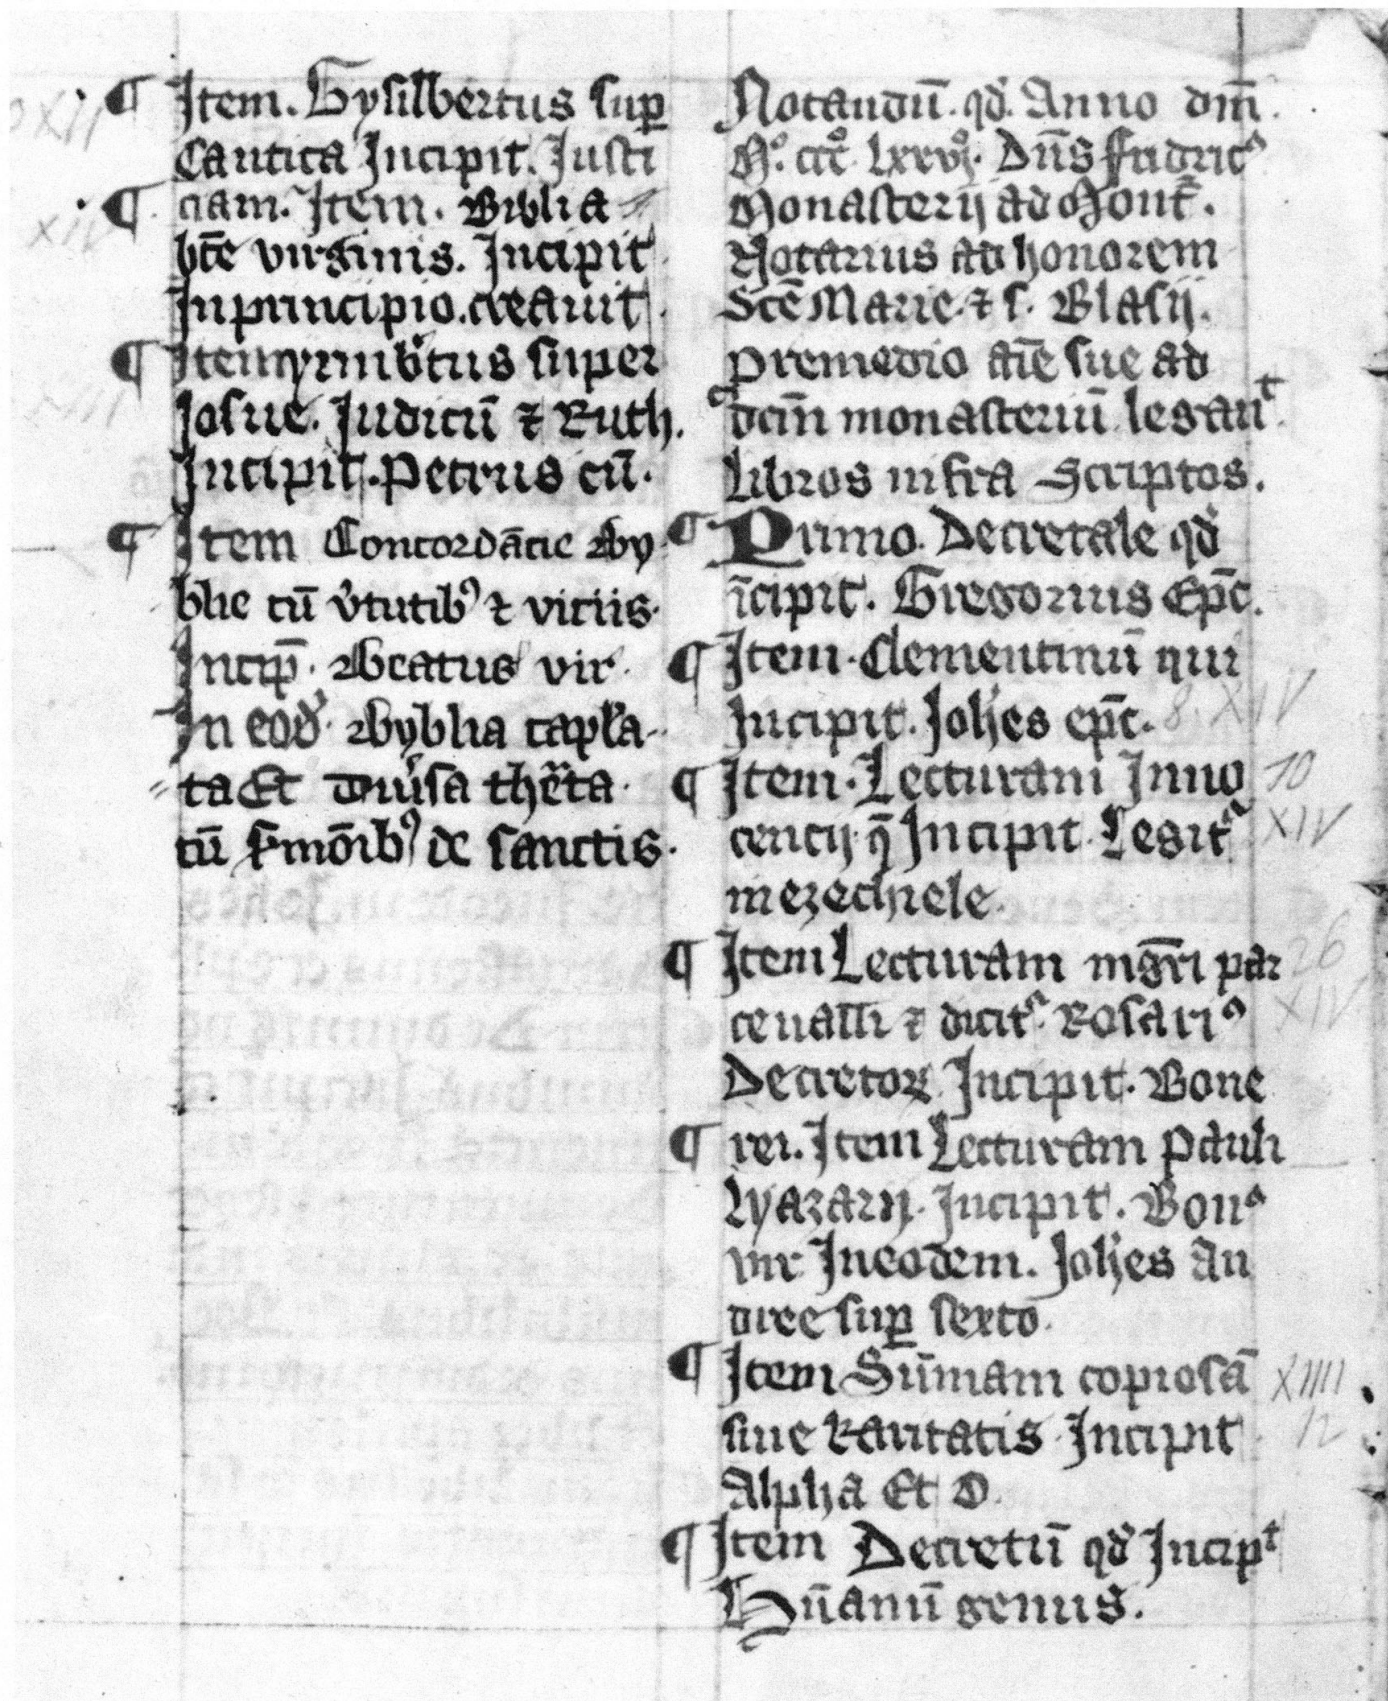 ¶ Item. Gysilbertus sup̄
Cantica Incipit. Justi
¶ ciam. Item. Biblia
bt̄e virginis. Incipit
In principio. creavit
¶ Item yrinb̾tus super
Josue. Judicū ⁊ Ruth.
Incipit. Petrus cū.
¶ Item Concordācie By
blie cū v̾tutibꝰ ⁊ viciis.
Incip̄. Beatus vir.
In eod̾. Byblia capl̾a
ta Et diu̾sa thēta.
cū s̾mōibꝰ de sanctis.
Notandū. qd̾. Anno dm̄.
Mº. cccº lxxvjº. Dn̄s ffridricꝰ
Monasterij ad Mont̄.
Notarius ad honorem
Sc̄e Marie. ⁊ s. Blasij.
p remedio aīe sue ad
dcm̄ monasteriū legauᵗ.
Libros infra Scriptos.
¶ Primo. Decretale qd̾
īcipit. Gregorius Ep̄c.
¶ Item. Clementinū qui
Incipit. Joh̄es ep̄c. 8. XIV
¶ Item. Lecturam Inno 10
cencij. q̄ Incipit. Legitᵣ XIV
in ezechiele.
¶ Item Lecturam mgr̄i par 26
ceualli ⁊ dicitᵣ. Rosariꝰ XIV
Decretoꝝ Incipit. Bone
¶ rei. Item Lecturam Pauli
Lyazarij. Incipit. Bonꝰ
vir In eodem. Joh̄es An
dree sup̄ sexto.
¶ Item Sūmam copiosā XIIII
siue karitatis Incipit 12
Alpha Et O.
¶ Item Decretū qd̾ Incipᵗ
Hūanū genus.